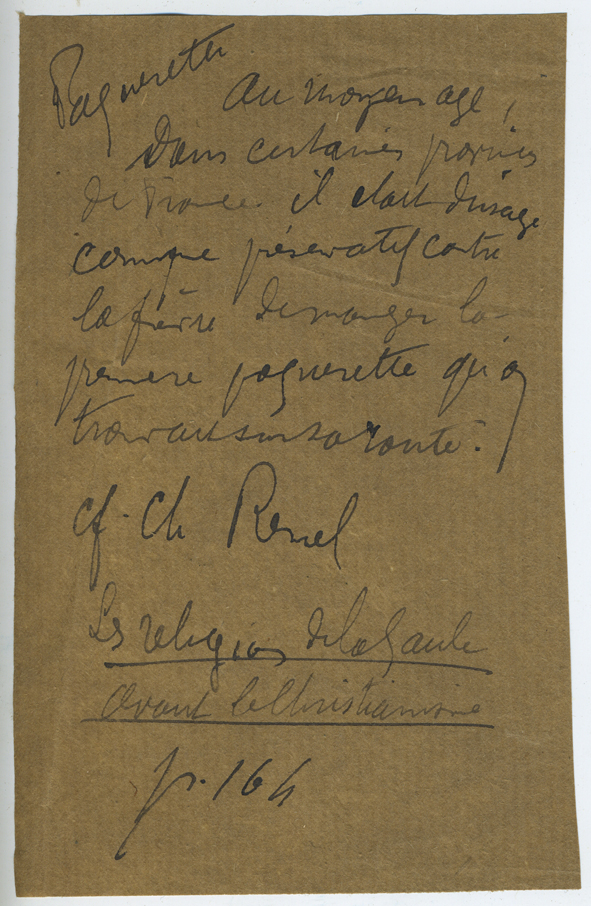 Paquerette
Au moyen age,
Dans certaines provinces
de France il était d'usage
comme préservatif contre
la fièvre de manger la
premiere paquerette qu'on
trouvait sur sa route.
cf. Ch Renel
Les religions de la Gaule
avant le Christianisme
p. 164